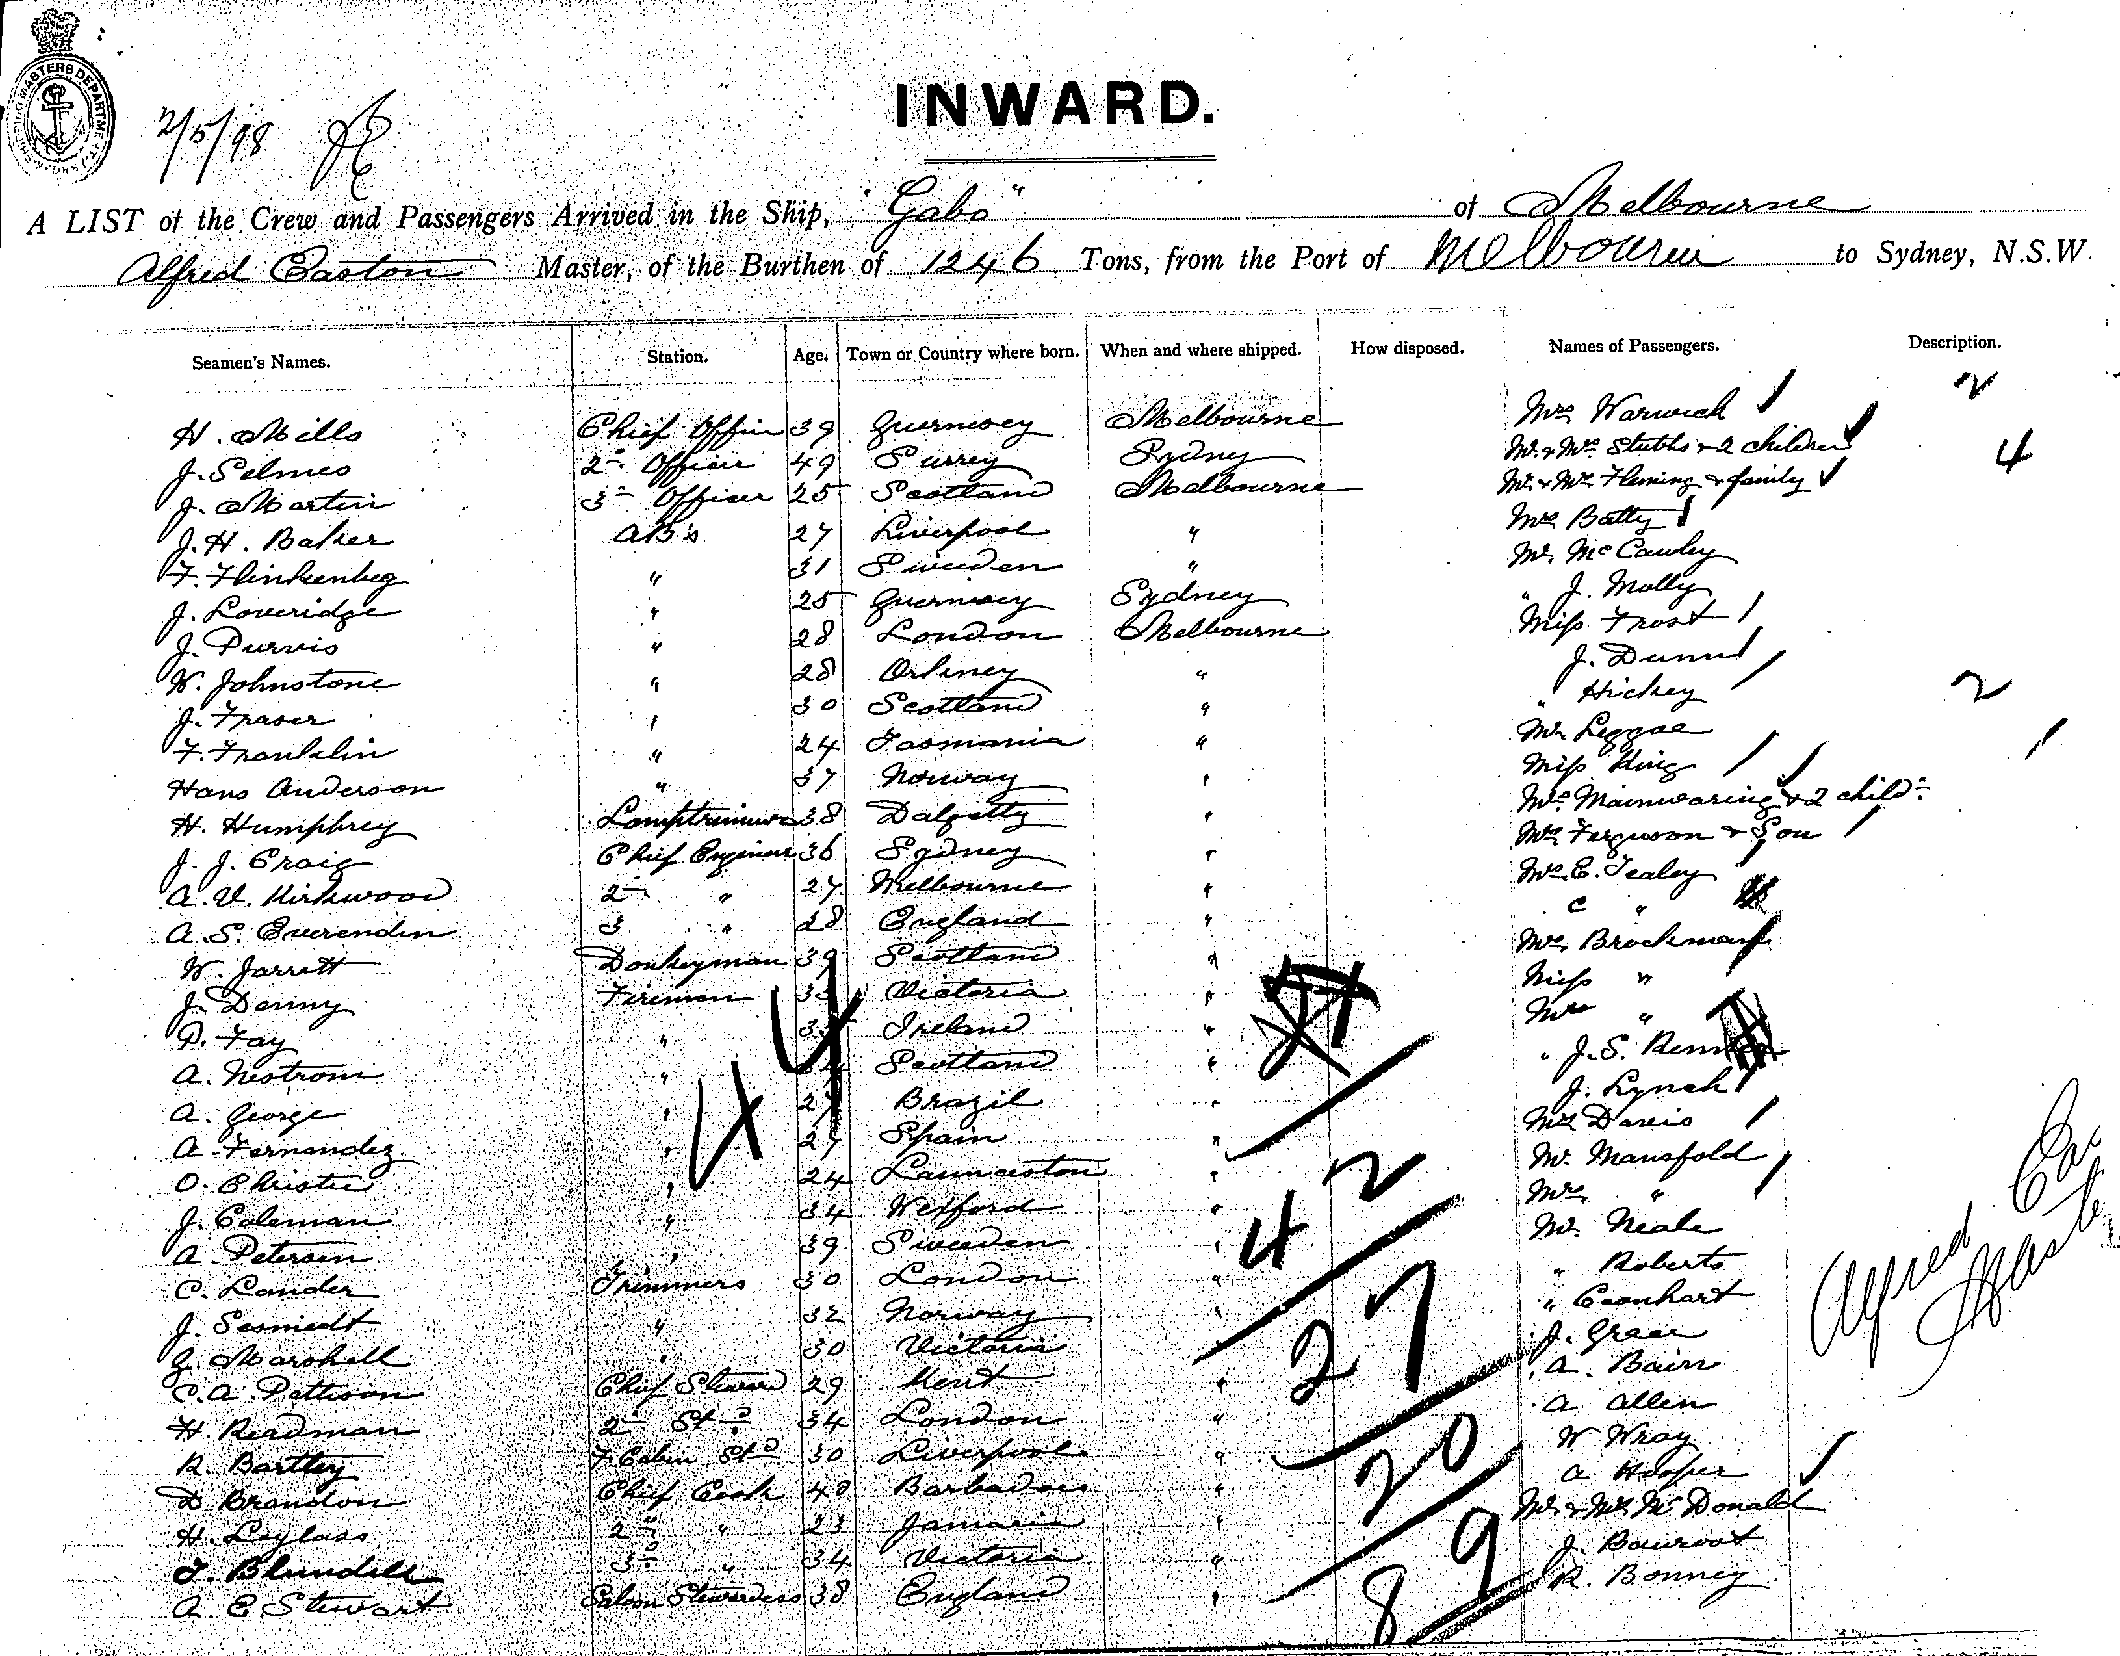 2/5/98
INWARD.
A LIST of the Crew and Passengers Arrived in the Ship, "Gabo" of Melbourne
Alfred Easton Master, of the Burthen of 1246 Tons, from the Port of Melbourne to Sydney, N.S.W.
Seamen's Names. Station. Age. Town or Country where born. When and where shipped. How disposed. Names of Passengers. Description.
H. Mills Chief Officer 39 Guernsey Melbourne Mrs Warwick 2
J. Selmes 2nd Officer 49 Surrey Sydney Mr & Mrs Stubbs & 2 children 4
J. Martin 3rd Officer 25 Scotland Melbourne Mr & Mrs Fleming & family
J. H. Baker AB's 27 Liverpool " Mrs Batty
F. Flinkenbeg " 31 Sweeden " Mr. McCawley
J. Loveridge " 25 Guernsey Sydney " J. Molly
J. Purvis " 28 London Melbourne Miss Frost
W. Johnstone " 28 Orkney " J. Dunn
J. Fraser " 30 Scotland " " Hickey 2
F. Franklin " 24 Tasmania " Mr Leggoe
Hans Anderson " 37 Norway " Miss King
H. Humphrey Lamptrimmer 38 Dalgetty " Mrs Mainwaring & 2 child:
J. J. Craig Chief Engineer 36 Sydney " Mrs Ferguson & Son
A. V. Kirkwood 2nd " 27 Melbourne " Mrs E. Tealey
A. S. Everenden 3 " 28 England " C "
W. Jarrett Donkeyman 39 Scotland " Mrs Brockman
J. Denny Fireman Victoria " Miss "
P. Fay " Ireland " Mrs "
A. Nestrom " Scotland " " J. S.
A. George " 27 Brazil " J. Lynch
A. Fernandez " 27 Spain " Mrs Davis
O. Christie " 24 Launceston " Mr. Mansfold
J. Coleman " 34 Wexford " Mrs "
A. Petersen " 39 Sweeden " Mr. Neale
C. Lander Trimmers 30 London " " Roberts
J. Sesmiedt " 32 Norway " "
G. Marshall " 30 Victoria " J. Greer
C. A. Pattison Chief Steward 29 Kent " A. Bairn
H. Readman 2nd Std 34 London " A Allen
R. Bartley F. Cabin Std 30 Liverpool " W Wray
D Brandon Chief Cook 48 Barbados " A Hooper
H. Leglass 2nd " 23 Jamaica " Mr & Mrs McDonald
T. Blundell 3rd " 34 Victoria " J.
A E Stewart Saloon Stewardess 38 England " R. Bonney
44
42
27
20
89
Alfred